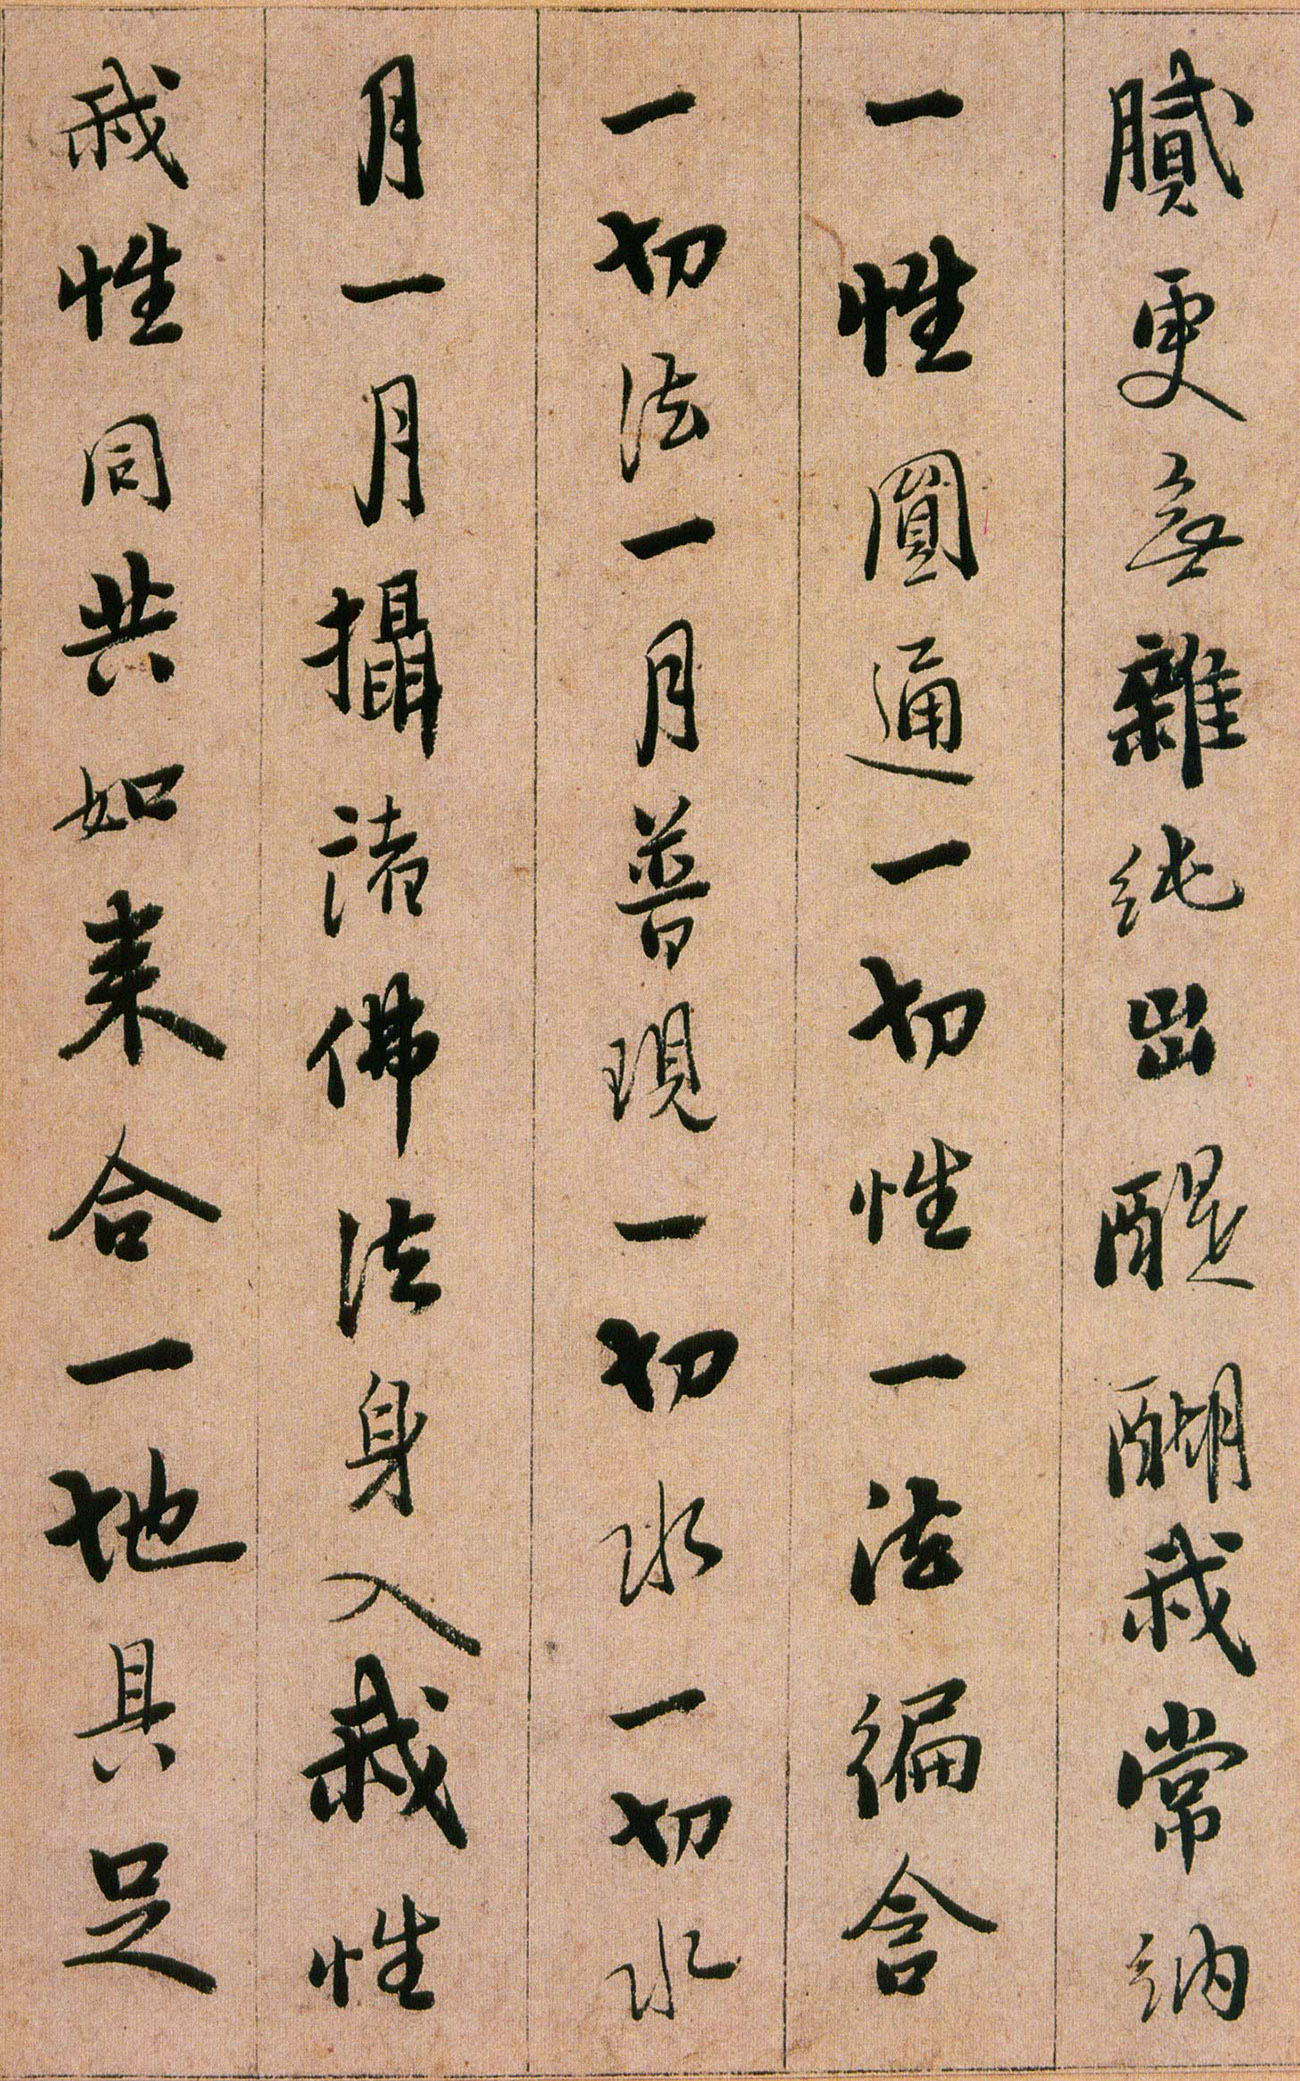 膩更無雜純出醍醐我常納
一性圓通一切性一法徧含
一切法一月普現一切水一切水
月一月攝諸佛法身入我性
我性同共如來合一地具足